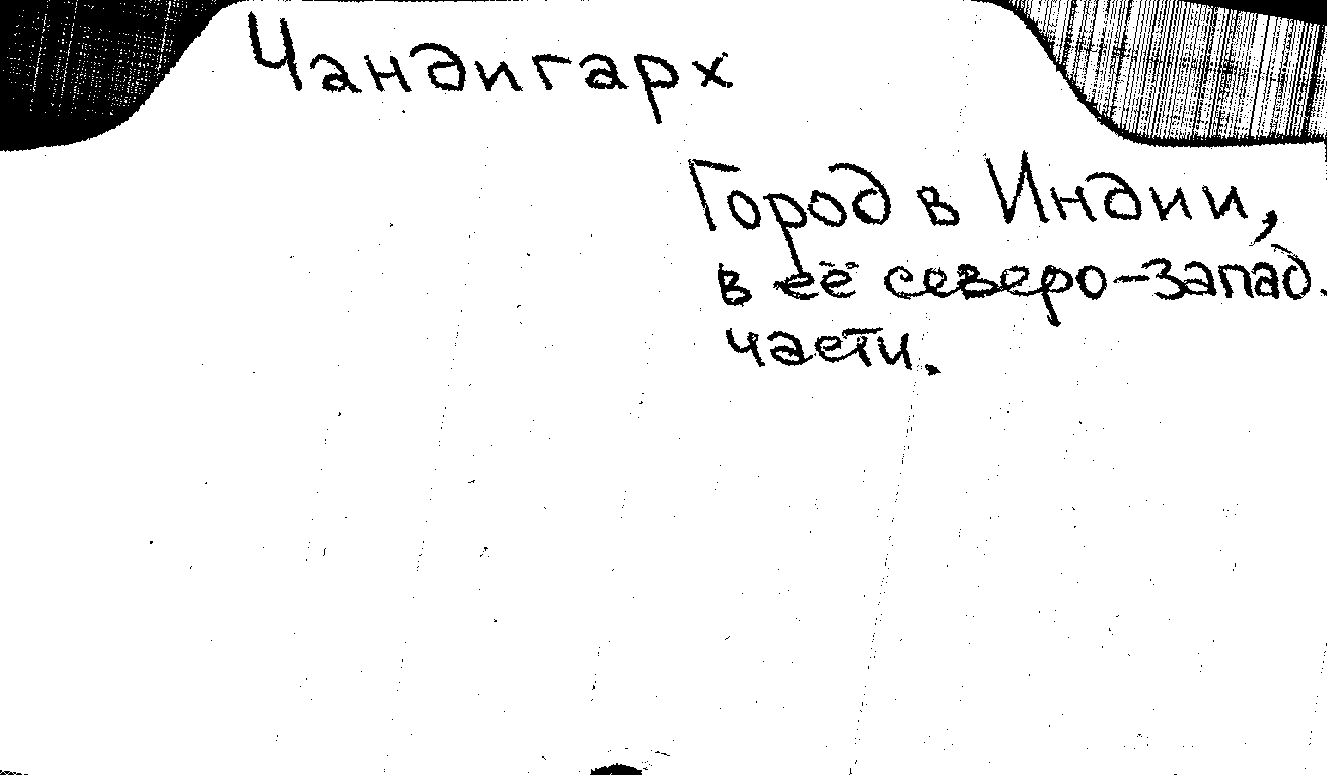 Чандигарх
Город в Индии,
в её северо-запад.
части.